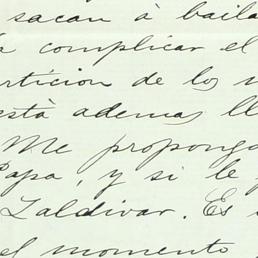 sacan à baila
complicar el
rticion de los
està ademas ll
Me propongo
Papa, y si le
Zaldivar. Es
el momento